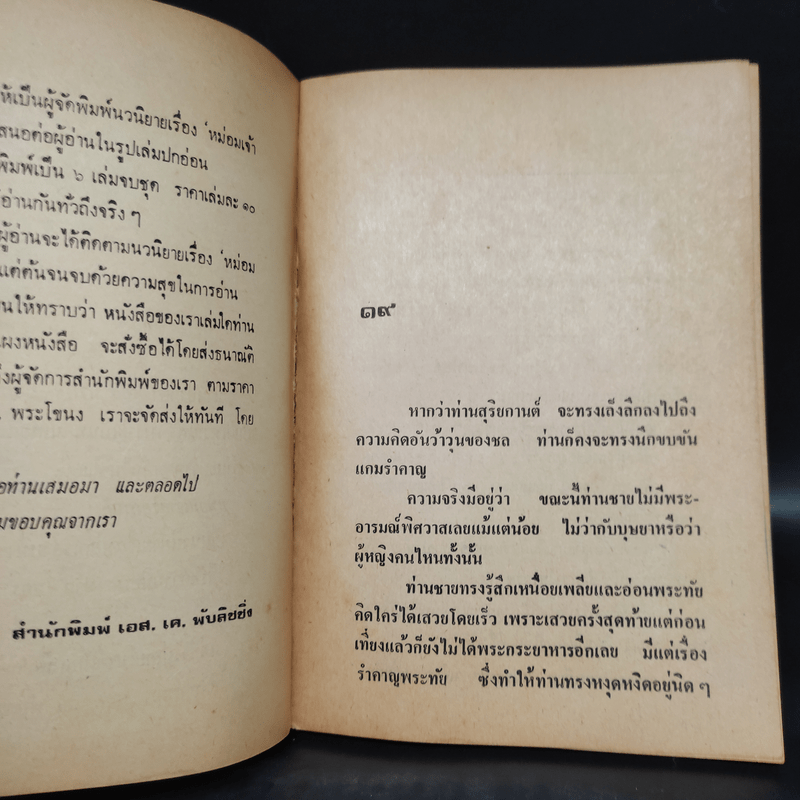 ห้เป็นผู้จัดพิมพ์นวนิยายเรื่อง 'หม่อมเจ้า
สนอต่อผู้อ่านในรูปเล่มปกอ่อน
พิมพ์เป็น ๖ เล่มจบชุด ราคาเล่มละ ๑๐
อ่านกันทั่วถึงจริง ๆ
ผู้อ่านจะได้ติดตามนวนิยายเรื่อง 'หม่อม
แต่ต้นจนจบด้วยความสุขในการอ่าน
นให้ทราบว่า หนังสือของเราเล่มใดท่าน
แผงหนังสือ จะสั่งซื้อได้โดยส่งธนาณัติ
งผู้จัดการสำนักพิมพ์ของเรา ตามราคา
พระโขนง เราจะจัดส่งให้ทันที โดย
อท่านเสมอมา และตลอดไป
มขอบคุณจากเรา
สำนักพิมพ์ เอส. เค. พับลิชชิ่ง
๑๙
หากว่าท่านสุริยกานต์ จะทรงเล็งลึกลงไปถึง
ความคิดอันว้าวุ่นของชล ท่านก็คงจะทรงนึกขบขัน
แกมรำคาญ
ความจริงมีอยู่ว่า ขณะนี้ท่านชายไม่มีพระ-
อารมณ์พิศวาสเลยแม้แต่น้อย ไม่ว่ากับบุษยาหรือว่า
ผู้หญิงคนไหนทั้งนั้น
ท่านชายทรงรู้สึกเหนื่อยเพลียและอ่อนพระทัย
คิดใคร่ได้เสวยโดยเร็ว เพราะเสวยครั้งสุดท้ายแต่ก่อน
เที่ยงแล้วก็ยังไม่ได้พระกระยาหารอีกเลย มีแต่เรื่อง
รำคาญพระทัย ซึ่งทำให้ท่านทรงหงุดหงิดอยู่นิด ๆ